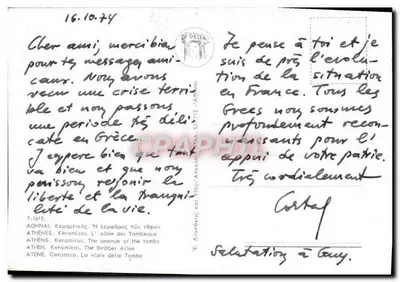 16.10.74
Cher ami, merci bien
pour tes messages ami-
caux. Nous avons
vecu une crise terri-
ble et nou passons
une periode très déli-
cate en Grèce.
J'espere bien que tout
va bien et que nou
puissons rejouir la
liberté et la tranqui-
lité de la vie.
Je pense à toi et je
suis de près l'evolu-
tion de la situation
en France. Tous les
Grecs nou sommes
profondement recon-
naissants pour l'
appui de votre patrie.
Très cordialement
Costas
Salutation à Guy.
DELTA
T-1415.
ΑΘΗΝΑΙ. Κεραμεικός. Ἡ λεωφόρος τῶν τάφων
ATHÈNES. Kéramicos. L' allée des Tombeaux
ATHENS. Keramicos. The avenue of the tombs
ATHEN. Keramikos. Die Gräber Allee
ATENE. Ceramico. La viale delle Tombe